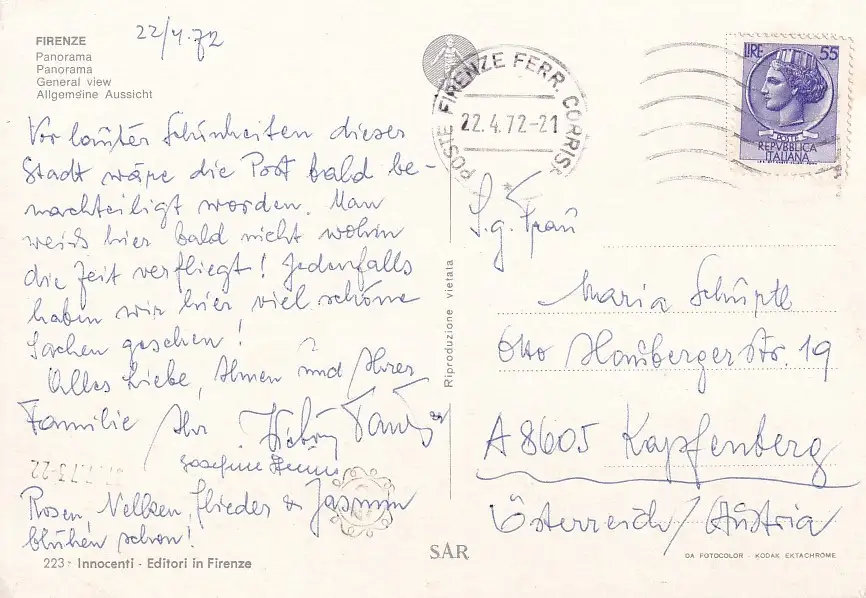 FIRENZE
Panorama
Panorama
General view
Allgemeine Aussicht
22/4.72
Vor lauter Schönheiten dieser
Stadt wäre die Post bald be-
nachteiligt worden. Man
weiß hier bald nicht wohin
die Zeit verfliegt! Jedenfalls
haben wir hier viel schöne
Sachen gesehen!
Alles Liebe, Ihnen und Ihrer
Familie Ihr
Rosen, Nelken, Flieder & Jasmin
blühen schon!
223 · Innocenti - Editori in Firenze
Riproduzione vietata
SAR
POSTE FIRENZE FERR. CORRISP
22.4.72-21
LIRE 55
POSTE
REPVBBLICA
ITALIANA
S.g. Frau
Maria
Otto Hauberger Str. 19
A 8605 Kapfenberg
Österreich / Austria
DA FOTOCOLOR - KODAK EKTACHROME